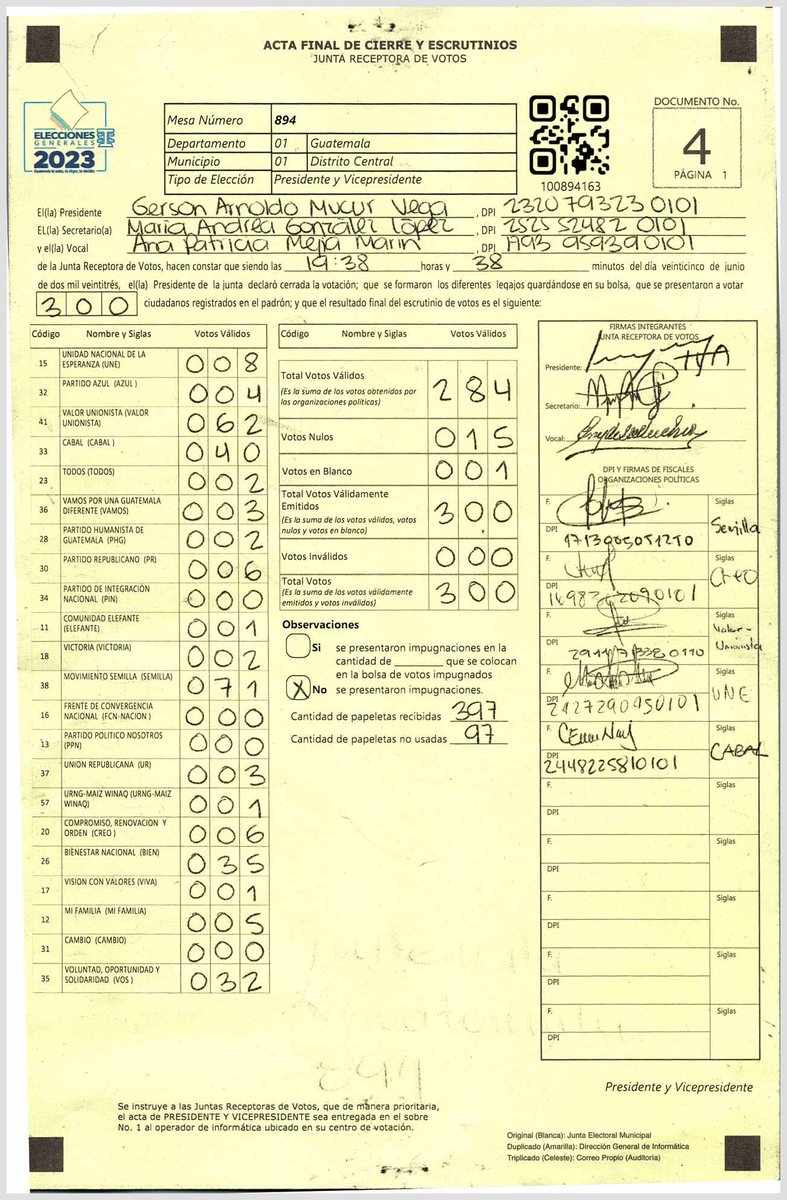 ACTA FINAL DE CIERRE Y ESCRUTINIOS
JUNTA RECEPTORA DE VOTOS
ELECCIONES
GENERALES
2023
Mesa Número 894
Departamento 01 Guatemala
Municipio 01 Distrito Central
Tipo de Elección Presidente y Vicepresidente
100894163
DOCUMENTO No.
4
PÁGINA 1
El(la) Presidente Gerson Arnoldo Mucur Vega, DPI 2320 79323 0101
EL(la) Secretario(a) Maria Andrea González López, DPI 2525 52482 0101
y el(la) Vocal Ana Patricia Mejia Marin, DPI 1793 959390101
de la Junta Receptora de Votos, hacen constar que siendo las 19:38 horas y 38 minutos del día veinticinco de junio
de dos mil veintitrés, el(la) Presidente de la junta declaró cerrada la votación; que se formaron los diferentes legajos guardándose en su bolsa, que se presentaron a votar
300 ciudadanos registrados en el padrón; y que el resultado final del escrutinio de votos es el siguiente:
Código Nombre y Siglas Votos Válidos
15 UNIDAD NACIONAL DE LA
ESPERANZA (UNE) 008
32 PARTIDO AZUL (AZUL ) 004
41 VALOR UNIONISTA (VALOR
UNIONISTA) 062
33 CABAL (CABAL ) 040
23 TODOS (TODOS) 002
36 VAMOS POR UNA GUATEMALA
DIFERENTE (VAMOS) 003
28 PARTIDO HUMANISTA DE
GUATEMALA (PHG) 002
30 PARTIDO REPUBLICANO (PR) 006
34 PARTIDO DE INTEGRACIÓN
NACIONAL (PIN) 000
11 COMUNIDAD ELEFANTE
(ELEFANTE) 001
18 VICTORIA (VICTORIA) 002
38 MOVIMIENTO SEMILLA (SEMILLA) 071
16 FRENTE DE CONVERGENCIA
NACIONAL (FCN-NACION ) 000
13 PARTIDO POLITICO NOSOTROS
(PPN) 000
37 UNION REPUBLICANA (UR) 003
57 URNG-MAIZ WINAQ (URNG-MAIZ
WINAQ) 001
20 COMPROMISO, RENOVACION Y
ORDEN (CREO ) 006
26 BIENESTAR NACIONAL (BIEN) 035
17 VISION CON VALORES (VIVA) 001
12 MI FAMILIA (MI FAMILIA) 005
31 CAMBIO (CAMBIO) 000
35 VOLUNTAD, OPORTUNIDAD Y
SOLIDARIDAD (VOS ) 032
Código Nombre y Siglas Votos Válidos
Total Votos Válidos 284
(Es la suma de los votos obtenidos por
las organizaciones políticas)
Votos Nulos 015
Votos en Blanco 001
Total Votos Válidamente
Emitidos 300
(Es la suma de los votos válidos, votos
nulos y votos en blanco)
Votos Inválidos 000
Total Votos 300
(Es la suma de los votos válidamente
emitidos y votos inválidos)
Observaciones
Si se presentaron impugnaciones en la
cantidad de ________ que se colocan
en la bolsa de votos impugnados
X No se presentaron impugnaciones.
Cantidad de papeletas recibidas 397
Cantidad de papeletas no usadas 97
FIRMAS INTEGRANTES
JUNTA RECEPTORA DE VOTOS
Presidente:
Secretario:
Vocal:
DPI Y FIRMAS DE FISCALES
ORGANIZACIONES POLÍTICAS
F. Siglas
Semilla
DPI
F. Siglas
Creo
DPI
F. Siglas
Valor-
Unionista
DPI
F. Siglas
UNE
DPI
F. Siglas
CABAL
DPI
2448225810101
F. Siglas
DPI
F. Siglas
DPI
F. Siglas
DPI
F. Siglas
DPI
F. Siglas
DPI
894
Presidente y Vicepresidente
Se instruye a las Juntas Receptoras de Votos, que de manera prioritaria,
el acta de PRESIDENTE Y VICEPRESIDENTE sea entregada en el sobre
No. 1 al operador de informática ubicado en su centro de votación.
Original (Blanca): Junta Electoral Municipal
Duplicado (Amarilla): Dirección General de Informática
Triplicado (Celeste): Correo Propio (Auditoría)